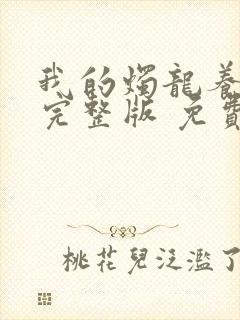 我的燭龍養
完整版 免費
桃花兒泛濫了